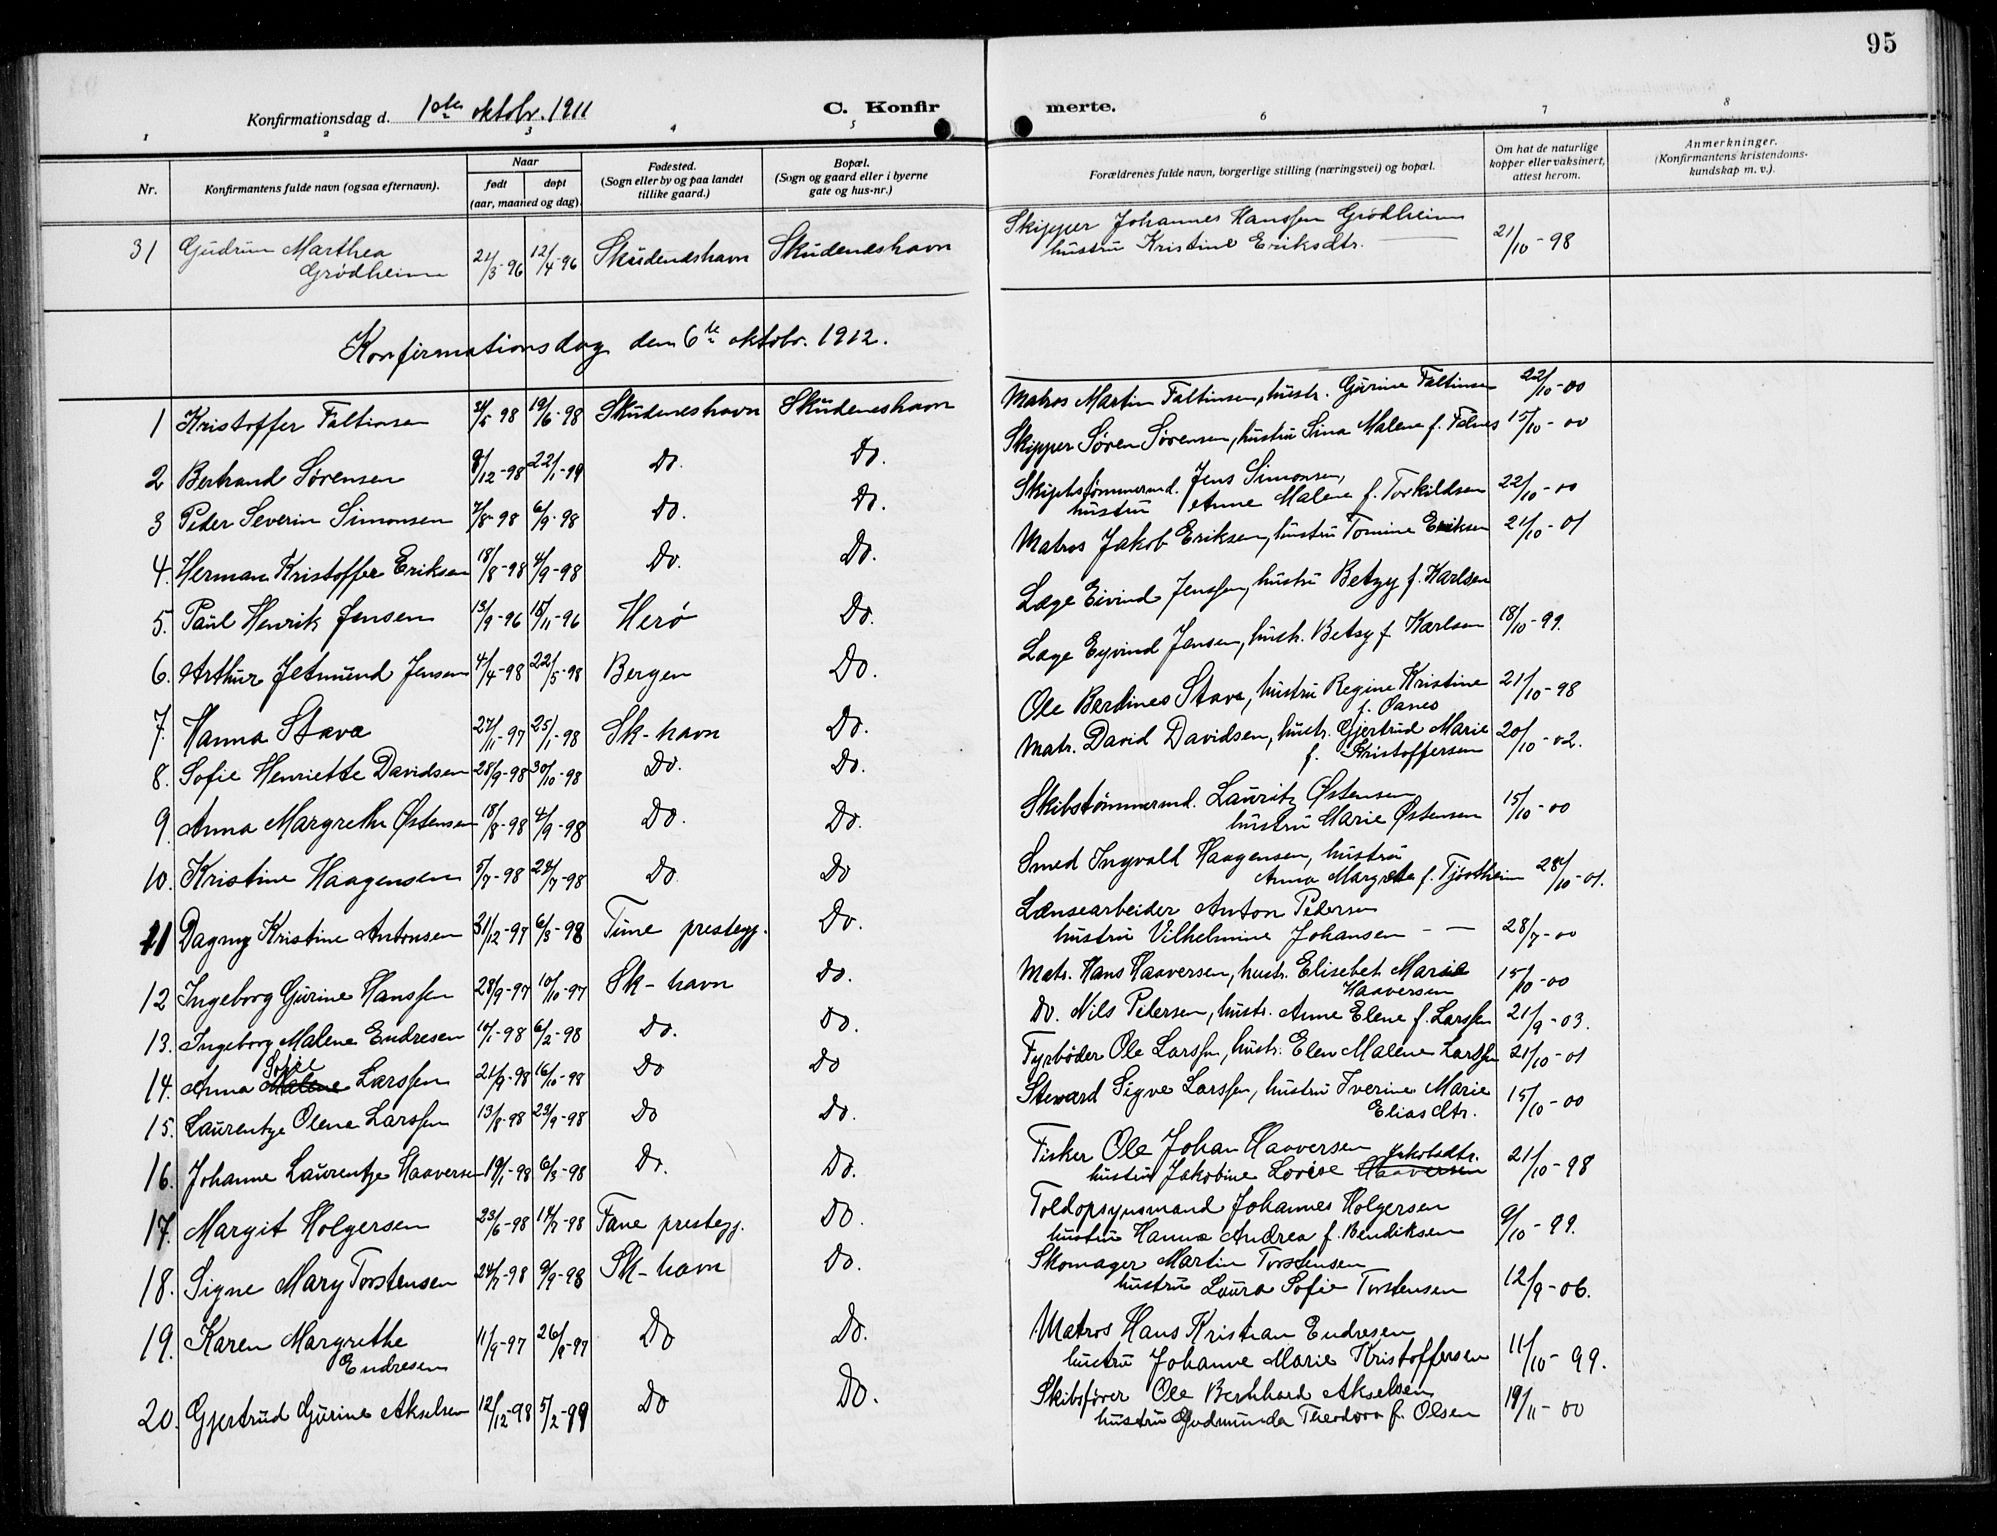 95
Konfirmationsdag d. 1ste oktobr. 1911 C. Konfirmerte.
1 2 3 4 5 6 7 8
Nr. Konfirmantens fulde navn (ogsaa efternavn). Naar født døpt (aar, maaned og dag). Fødested. (Sogn eller by og paa landet tillike gaard.) Bopæl. (Sogn og gaard eller i byerne gate og hus-nr.) Forældrenes fulde navn, borgerlige stilling (næringsvei) og bopæl. Om hat de naturlige kopper eller vaksinert, attest herom. Anmerkninger. (Konfirmantens kristendomskundskap m. v.).
31 Gudrun Marthea Grödheim 21/3-96 12/4-96 Skudeneshavn Skudeneshavn Skipper Johannes Hanssen Grödheim hustru Kristine Eriksdtr. 21/10-98
Konfirmationsdag den 6te oktobr. 1912.
1 Kristoffer Faltinsen 31/5-98 19/6-98 Skudeneshavn Skudeneshavn Matros Martin Faltinsen, hustr. Gurine Faltinsen 22/10-00
2 Bertrand Sørensen 8/12-98 22/1-99 Do. Do. Skipper Søren Sørensen, hustru Sina Malene f. Falnes 15/10-00
3 Peder Severin Simonsen 7/8-98 6/9-98 Do. Do. Skipstømmermd. Jens Simonsen, hustru Anne Malene f. Torkildsen 22/10-00
4. Herman Kristoffer Eriksen 18/8-98 4/9-98 Do. Do. Matros Jakob Eriksen, hustru Tomine Eriksen 21/10-01
5. Paul Henrik Jensen 13/9-96 15/11-96 Herø Do. Læge Eivind Jenssen, hustru Betzy f. Karlsen
6. Arthur Jetmund Jensen 4/4-98 22/5-98 Bergen Do. Læge Eyvind Jensen, hustr. Betsy f. Karlsen 18/10-99.
7. Hanna Stava 27/11-97 25/1-98 Sk-havn Do. Ole Berdines Stava, hustru Regine Kristine f. Oanes 21/10-98
8. Sofie Henriette Davidsen 28/9-98 30/10-98 Do. Do. Matr. David Davidsen, hustr. Gjertrud Marie f. Kristoffersen 20/10-02.
9. Anna Margrethe Østensen 18/8-98 4/9-98 Do. Do. Skibstömmermd. Lauritz Østensen hustru Marie Østensen 15/10-00
10. Kristine Haagensen 5/7-98 24/7-98 Do Do Smed Ingvald Haagensen, hustru Anna Margreta f. Tjøstheim 28/10-01.
11 Dagny Kristine Antonsen 31/12-97 6/3-98 Time prestegj. Do. Lænsearbeider Anton Pedersen hustru Vilhelmine Johansen - - 28/7-00
12 Ingeborg Gurine Hanssen 28/9-97 10/10-97 Sk-havn Do. Matr. Hans Haaversen, hustr. Elisebet Marie Haaversen 15/10-00
13. Ingeborg Malene Endresen 10/1-98 6/2-98 Do. Do. Do. Nils Pedersen, hustr. Anne Elene f. Larssen 21/9-03.
14. Anna Malene Sofie Larssen 21/9-98 16/10-98 Do Do Fyrböder Ole Larssen, hustr. Elen Malene Larssen 21/10-01
15. Laurentze Olene Larssen 13/8-98 23/9-98 Do Do. Steward Sigve Larssen, hustru Iverine Marie Eliasdtr. 15/10-00
16. Johanne Laurentze Haaversen 19/1-98 6/3-98 Do. Do. Fisker Ole Johan Haaversen hustru Jakobine Lovise Haaversen Jakobsdtr. 21/10-98
17. Margit Holgersen 23/6-98 14/7-98 Fane prestegj. Do. Toldopsynsmand Johannes Holgersen hustru Hanna Andrea f. Bendiksen 9/10-99.
18. Signe Mary Torstensen 24/7-98 9/9-98 Sk-havn Do. Skomager Martin Torstensen hustru Laura Sofie Torstensen 12/9-06.
19. Karen Margrethe Endresen 11/9-97 26/9-97 Do Do. Matros Hans Kristian Endresen hustru Johanne Marie Kristoffersen 11/10-99.
20. Gjertrud Gurine Akselsen 12/12-98 5/2-99 Do Do. Skibsfører Ole Bernhard Akselsen hustru Gudmunda Theodora f. Olsen 19/11-00